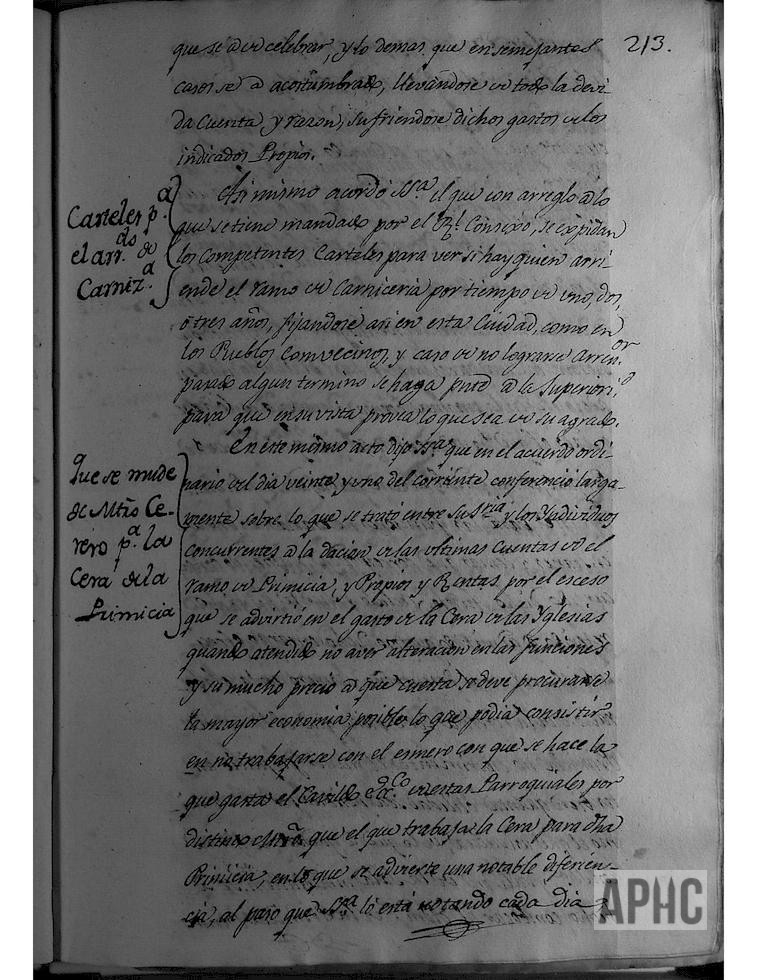 213.
que se à de celebrar, y lo demas que en semejantes
casos se à acostumbrado, llevandose de todo la devi-
da cuenta y razon, sufriendose dichos gastos de los
indicados Propios.
Carteles p.ª
el arr.do de
Carniz.ª
Asi mismo acordó S.ª el que con arreglo à lo
que se tiene mandado por el R.l Consexo, se expidan
los Competentes Carteles para ver si hay quien arri-
ende el ramo de Carniceria por tiempo de uno, dos,
ô tres años, fijandose asi en esta Ciudad, como en
los Pueblos Comvecinos, y caso de no lograrse
algun termino se haga à la Superiori.
para que en su vista provea lo que sea de su agrado.
Que se mude
de Mtro Ce-
rero p.ª la
Cera de la
Primicia
En este mismo acto dijo S.ª que en el acuerdo ordi-
nario del dia veinte y uno del corriente conferenció larga-
mente sobre lo que se trató entre su Sria y los Yndividuos
concurrentes à la dacion de las ultimas Cuentas de el
ramo de Primicia, y Propios y Rentas por el exceso
que se advirtió en el gasto de la Cera de las Yglesias
quando atendido no aver alteracion en las funciones
y su mucho precio à que cuesta se deve procurarse
la mayor economia posible lo que podia consistir
en no trabajarse con el esmero con que se hace la
que gasta el Cavildo ecc.co de estas Parroquiales por
distinto Mtro que el que trabaja la Cera para dha
Primicia, en lo que se advierte una notable diferen-
cia, al paso que S.ª lo está notando cada dia
APHC